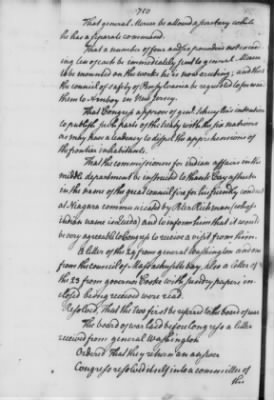 That general Mercer be allowed a secretary while
he has a separate command.
That a number of four and six pounders not exceed
ing ten of each be immediately sent to general Mercer
to be mounted on the works he is now erecting; and that
the council of safety of Pennsylvania be requested to forward
them to Amboy in New Jersey.
That Congress approve of genl. Schuyler's intention
to publish such parts of the treaty with the six nations
as may have a tendency to dispel the apprehensions of
the frontier inhabitants.
That the commissioners for indian affairs in the
middle department be instructed to thank
in the name of the great council fire for his friendly conduct
at Niagara communicated by Peter Rickman (whose
indian name is) and to inform him that it would
be very agreeable to Congress to receive a visit from him.
A letter of the 24 from general Washington and one
from the council of Massachusetts bay, also a letter of
the 23 from governor Cooke with sundry papers in
closed being received were read.
Resolved, That the two first be referred to the board of war.
The board of war laid before Congress a letter
received from general Washington
Ordered That they return an answer
Congress resolved itself into a committee of
the